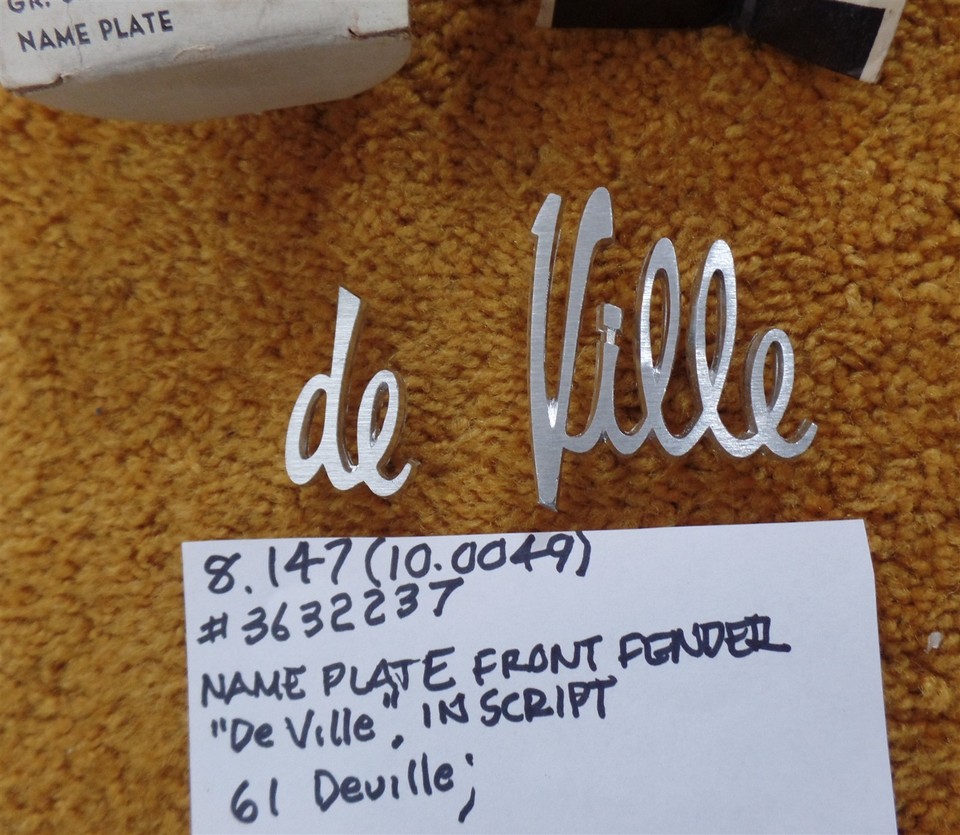 NAME PLATE
de Ville
8.147(10.0049)
#3632237
NAME PLATE FRONT FENDER
"De Ville", IN SCRIPT
61 Deville;